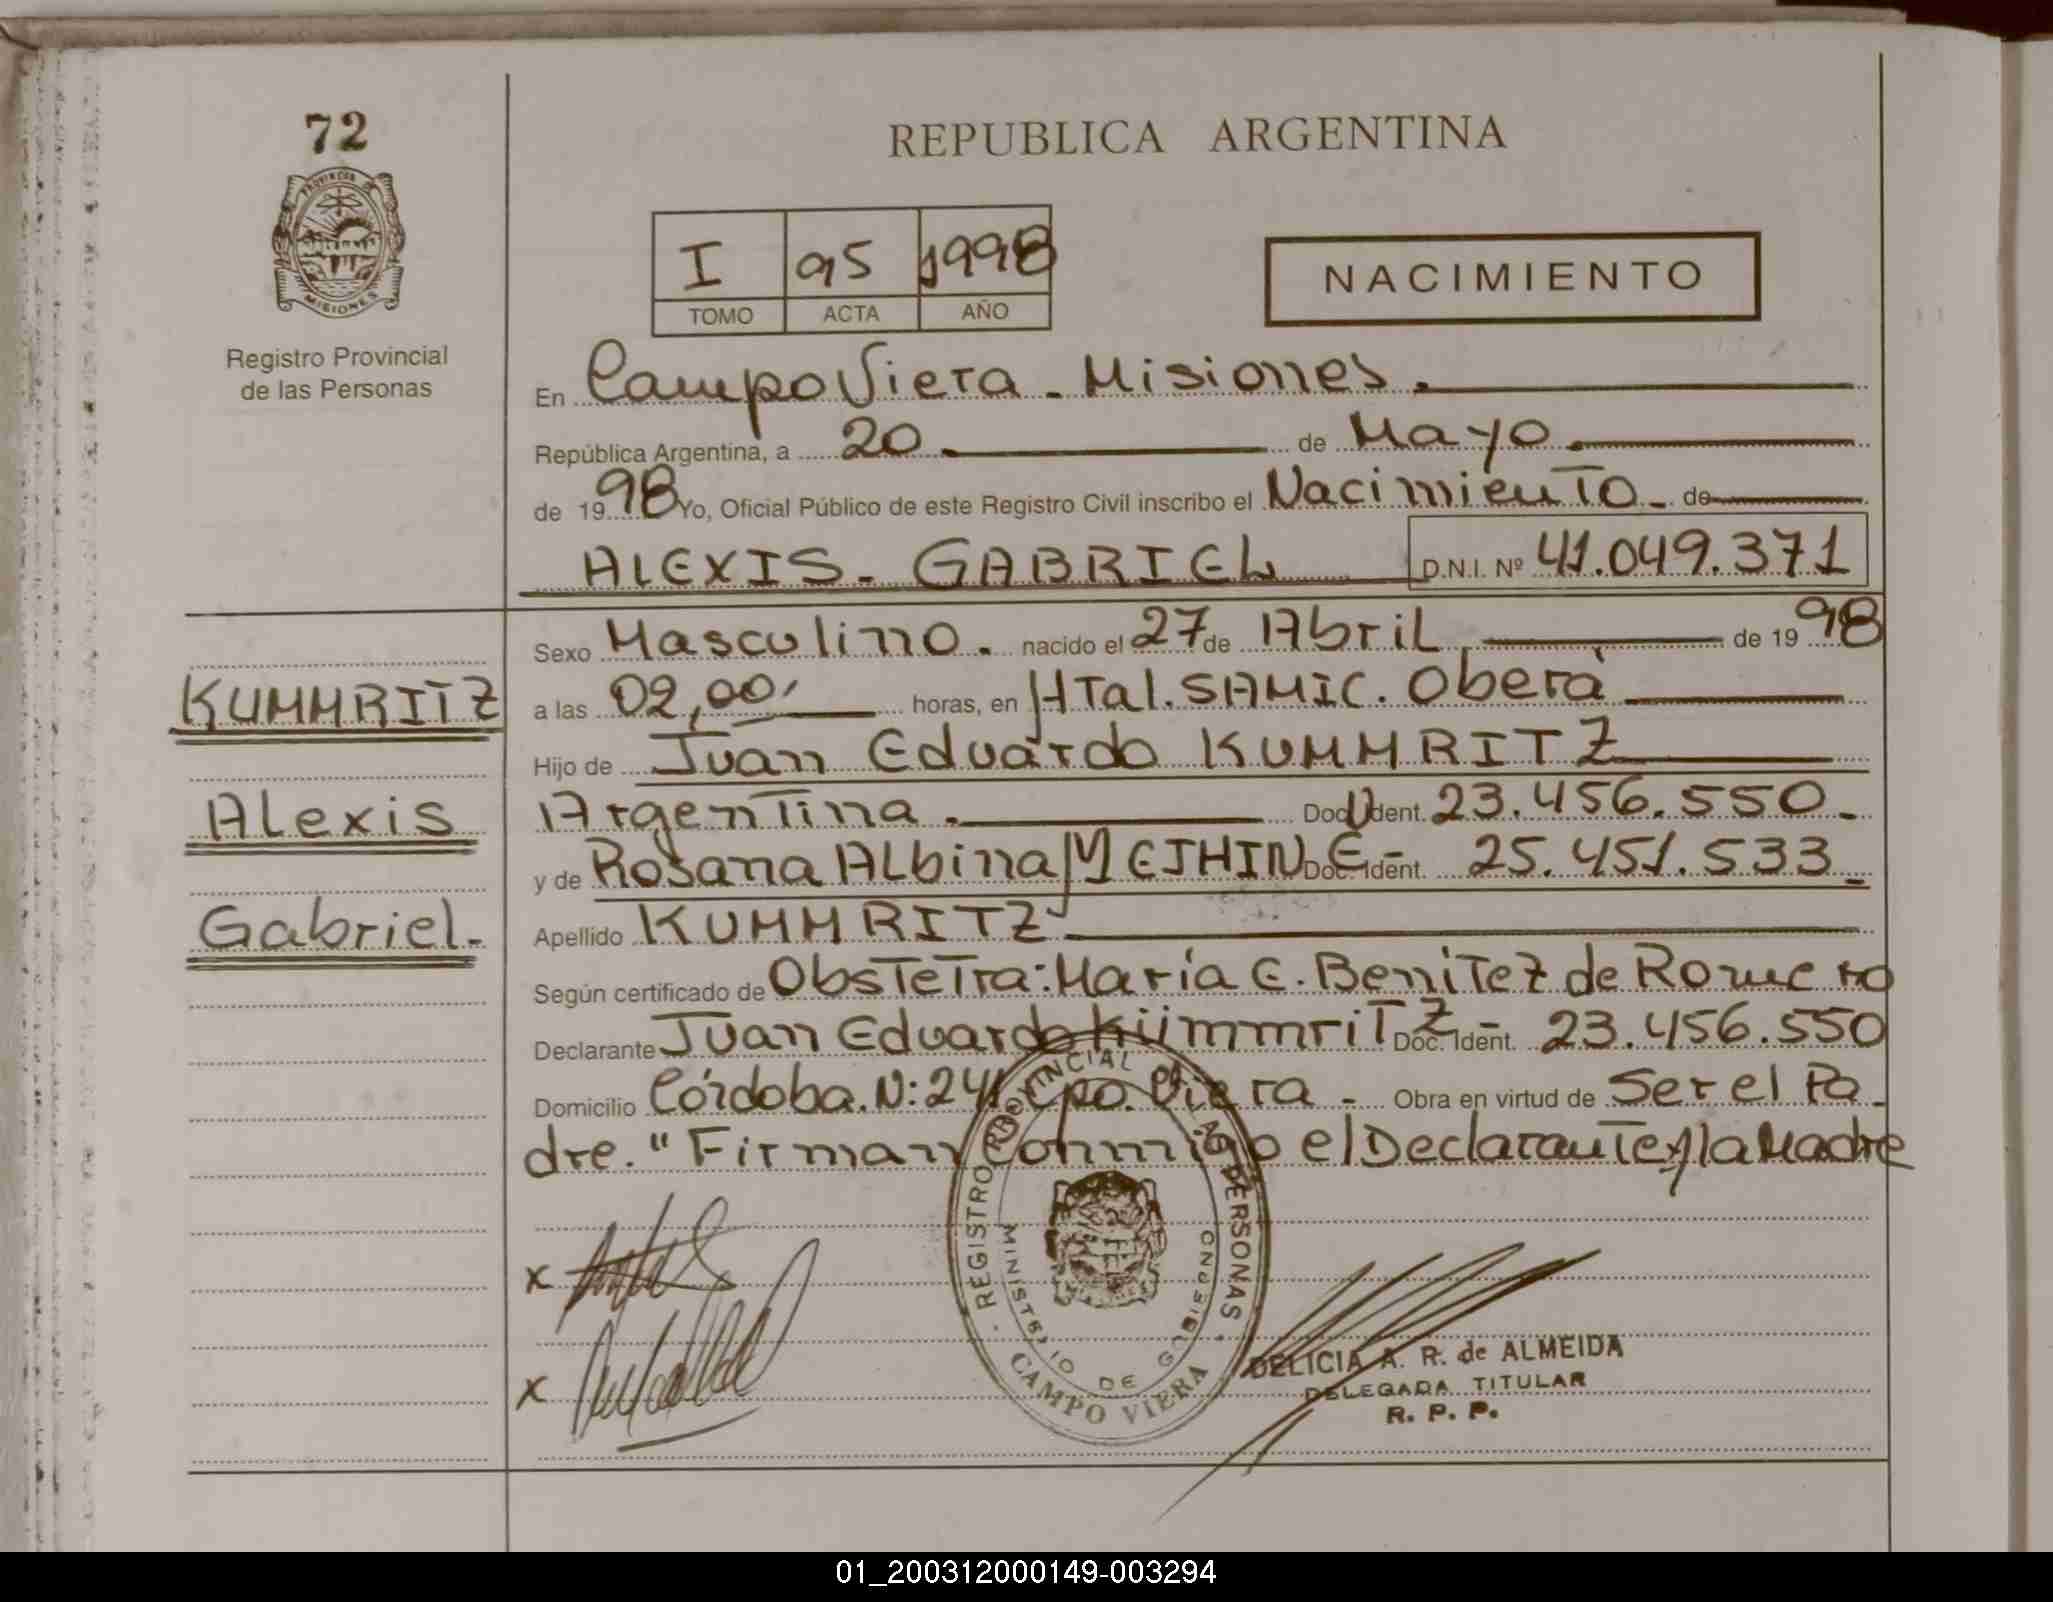 72
PROVINCIA DE
MISIONES
Registro Provincial
de las Personas
REPUBLICA ARGENTINA
I 95 1998
TOMO ACTA AÑO
NACIMIENTO
En Campo Viera - Misiones.
República Argentina, a 20 de Mayo
de 1998 Yo, Oficial Público de este Registro Civil inscribo el Nacimiento - de
ALEXIS - GABRIEL D.N.I. Nº 41.049.371
KUMMRITZ
Alexis
Gabriel.
Sexo Masculino. nacido el 27 de Abril de 1998
a las 02,00 horas, en HTal. SAMIC. Oberá
Hijo de Juan Eduardo KUMMRITZ
Argentina. Doc. Ident. 23.456.550.-
y de Rosana Albina Doc. Ident. 25.451.533-
Apellido KUMMRITZ
Según certificado de Obstetra: María E. Benitez de Romero
Declarante Juan Eduardo Kümmritz Doc. Ident. 23.456.550
Domicilio Córdoba. N: 241 Cpo. Viera - Obra en virtud de Ser el Pa-
dre. "Firman Conmigo el Declarante y la Madre
x
x
REGISTRO PROVINCIAL DE LAS PERSONAS
MINISTERIO DE GOBIERNO
CAMPO VIERA
DELICIA A. R. de ALMEIDA
DELEGADA TITULAR
R. P. P.
01_200312000149-003294